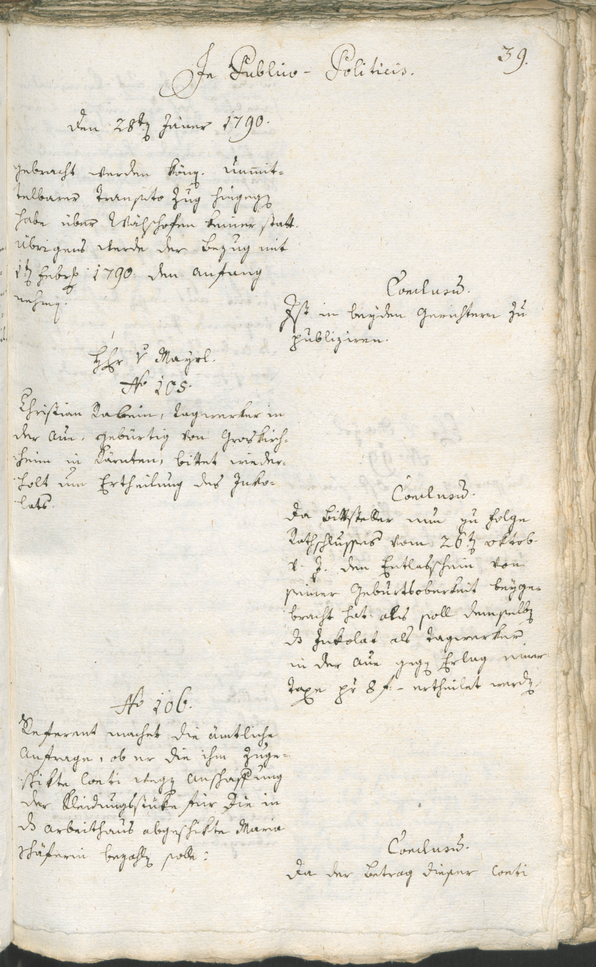 39.
In Publico-Politicis.
Den 28t Jäner 1790.
gebracht werden könn. Unmit-
telbarer Transito Zug hingegen
habe über Wälschofen keiner statt.
Übrigens werde der Bezug mit
1t Febr. 1790 den Anfang
nehmen.
Conclusum.
Ist in beyden Gerichtern zu
publiziren.
Hr v Mayrl.
No 105.
Christian Rabein, Tagwerker in
der Aue, gebürtig von Groskirch-
heim in Kärnten, bittet wieder-
holt um Ertheilung des Inko-
lats.
Conclusum.
Da Bittsteller nun zu Folge
Rathschlusses vom 26t Oktob.
v. J. den Entlaßschein von
seiner Geburtsoberkeit beyge-
bracht hat als soll demselben
ds Inkolat als Tagwerker
in der Aue gegen Erlag einer
Taxe pr 8 f - ertheilet werden.
No 106.
Referent machet die ämtliche
Anfrage, ob er die ihm zuge-
schikte Conti wegen Anschaffung
der Kleidungsstüke für die in
ds Arbeithaus abgeschikte Maria
Schäferin bezahlen solle:
Conclusum.
Da der Betrag dieser Conti